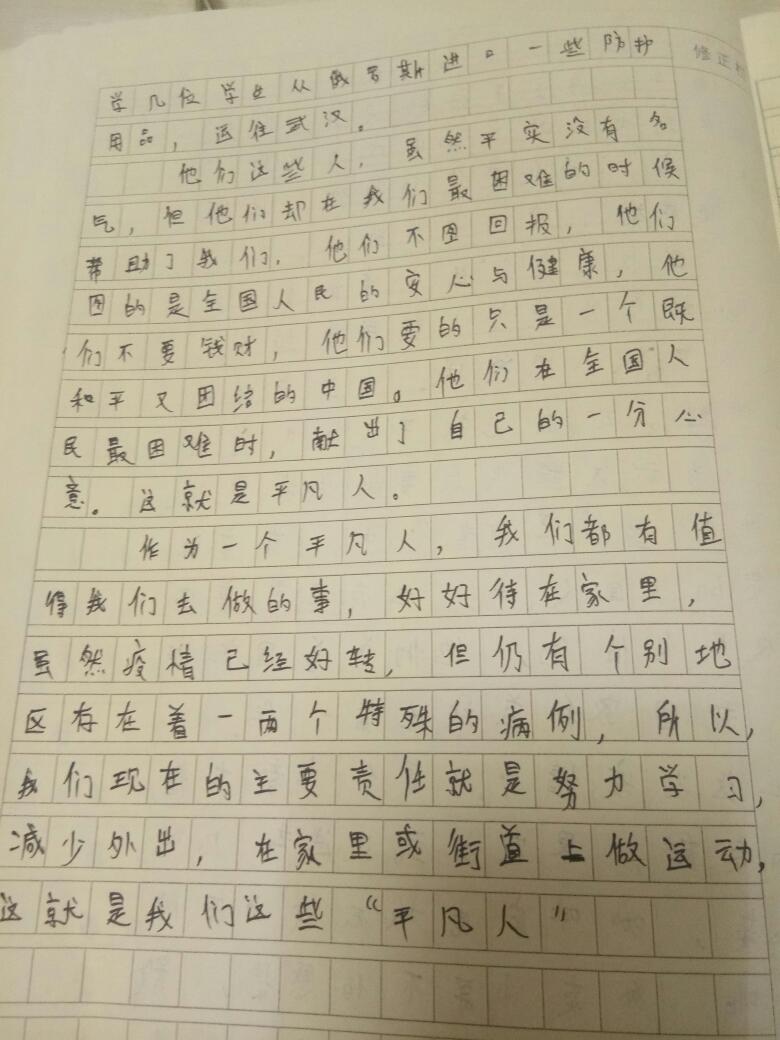 学几位学生从俄罗斯进口一些防护
修正栏
用品，运往武汉。
他们这些人，虽然平实没有名
气，但他们却在我们最困难的时候
帮助了我们，他们不图回报，他们
图的是全国人民的安心与健康，他
们不要钱财，他们要的只是一个既
和平又团结的中国。他们在全国人
民最困难时，献出了自己的一分心
意。这就是平凡人。
作为一个平凡人，我们都有值
得我们去做的事，好好待在家里，
虽然疫情已经好转，但仍有个别地
区存在着一两个特殊的病例，所以，
我们现在的主要责任就是努力学习，
减少外出，在家里或街道上做运动，
这就是我们这些“平凡人”